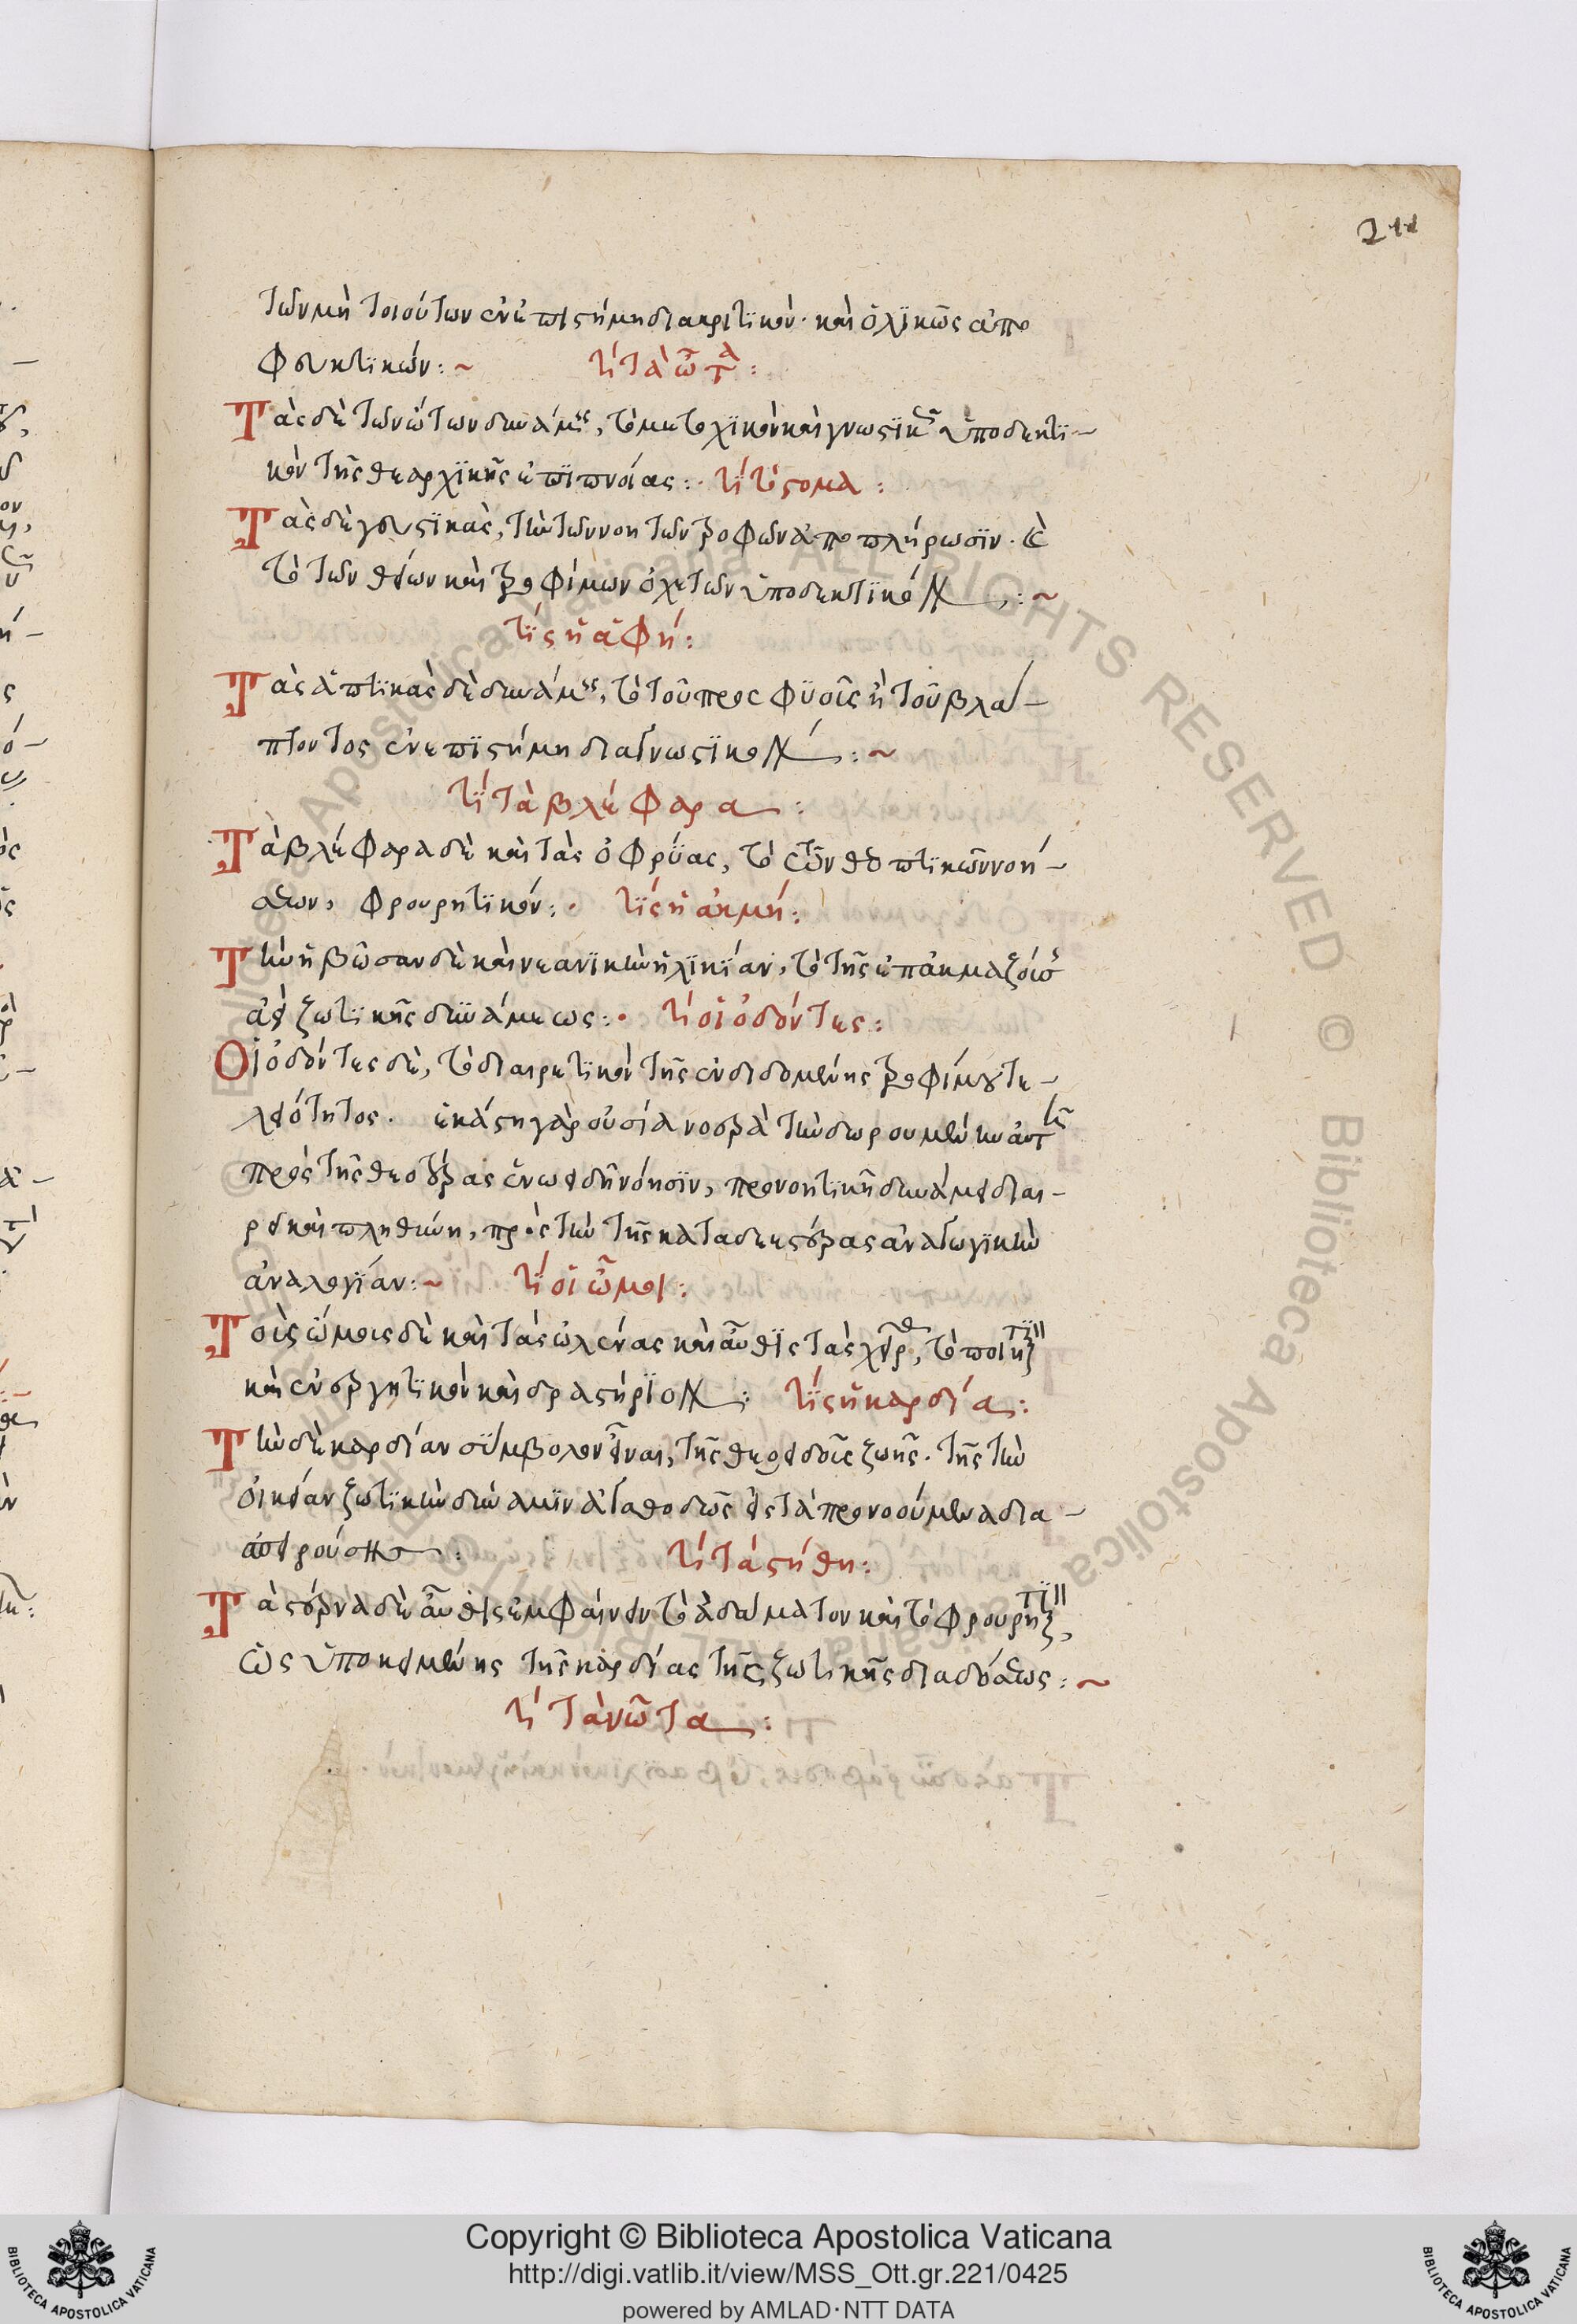 211
τῶν μὴ τοιούτων ἐν ἐπιστήμη διακριτικὸν· καὶ ὁλϊκῶς ἀπο
φευκτικών:~ τί τὰ ὦτα:
Τὰς δὲ τῶν ὤτων δυνάμεις, τὸ μετοχϊκὸν καὶ γνωστϊκῶς ὑποδεκτι-
κὸν τῆς θεαρχϊκῆς ἐπϊπνοίας:· τί τὸ στομα:
Τὰς δὲ γευστϊκὰς, τὴν τῶν νοητῶν τροφῶν ἀποπλήρωσϊν· καὶ
τὸ τῶν θείων καὶ τροφίμων ὀχετῶν ὑποδεκτϊκόν:~
τίς ἡ ἁφή:
Τὰς ἁπτϊκὰς δὲ δυνάμεις, τὸ τοῦ προσφϋοῦς ἢ τοῦ βλά-
πτοντος ἐν επϊστήμη διαγνωστϊκόν:~
τί τὰ βλέφαρα:
Τὰ βλέφαρα δὲ καὶ τὰς ὀφρϋας, τὸ τῶν θεοπτϊκῶν νοή-
σεων, φρουρητϊκόν:· τίς ἡ ἀκμή:
Τὴν ἡβῶσαν δὲ καὶ νεανϊκὴν ἡλϊκίαν, τὸ τῆς ἐπακμαζούσης
ἀεὶ ζωτϊκῆς δυνάμεως:· τί οἱ ὀδόντες:
Οἱ ὀδόντες δὲ, τὸ διαιρετϊκὸν τῆς ἐνδιδομένης τροφίμου τε-
λειότητος. ἑκάστη γὰρ οὐσία νοερὰ τὴν δωρουμένην αὐτῆ
πρὸς τῆς θειοτέρας ἑνωειδῆ νόησϊν, προνοητϊκῆ δυνάμει διαι-
ρεῖ καὶ πληθύνη, πρὸς τὴν τῆς καταδεεστέρας ἀναγωγϊκὴν
ἀναλογίαν:~ τί οἱ ὦμοι:
Τοὺς ὤμους δὲ καὶ τὰς ὠλένας καὶ αὖθϊς τὰς χεῖρας, τὸ ποιητικὸν
καὶ ἐνεργητϊκὸν καὶ δραστήρϊον: τίς ἡ καρδία:
Τὴν δὲ καρδίαν σϋμβολον εἶναι, τῆς θεοειδοῦς ζωῆς. τῆς τὴν
οἰκείαν ζωτϊκὴν δύναμϊν ἀγαθοειδῶς εἰς τὰ προνοούμενα δια-
σπειρούσης: τί τὰ στήθη:
Τὰ στέρνα δὲ αὖθις ἐμφαίνειν τὸ ἀδάματον καὶ τὸ φρουρητικὸν,
ὡς ὑποκειμένης τῆς καρδίας τῆς ζωτικῆς διαδόσεως:~
τί τὰ νῶτα:
Copyright © Biblioteca Apostolica Vaticana
http://digi.vatlib.it/view/MSS_Ott.gr.221/0425
powered by AMLAD·NTT DATA